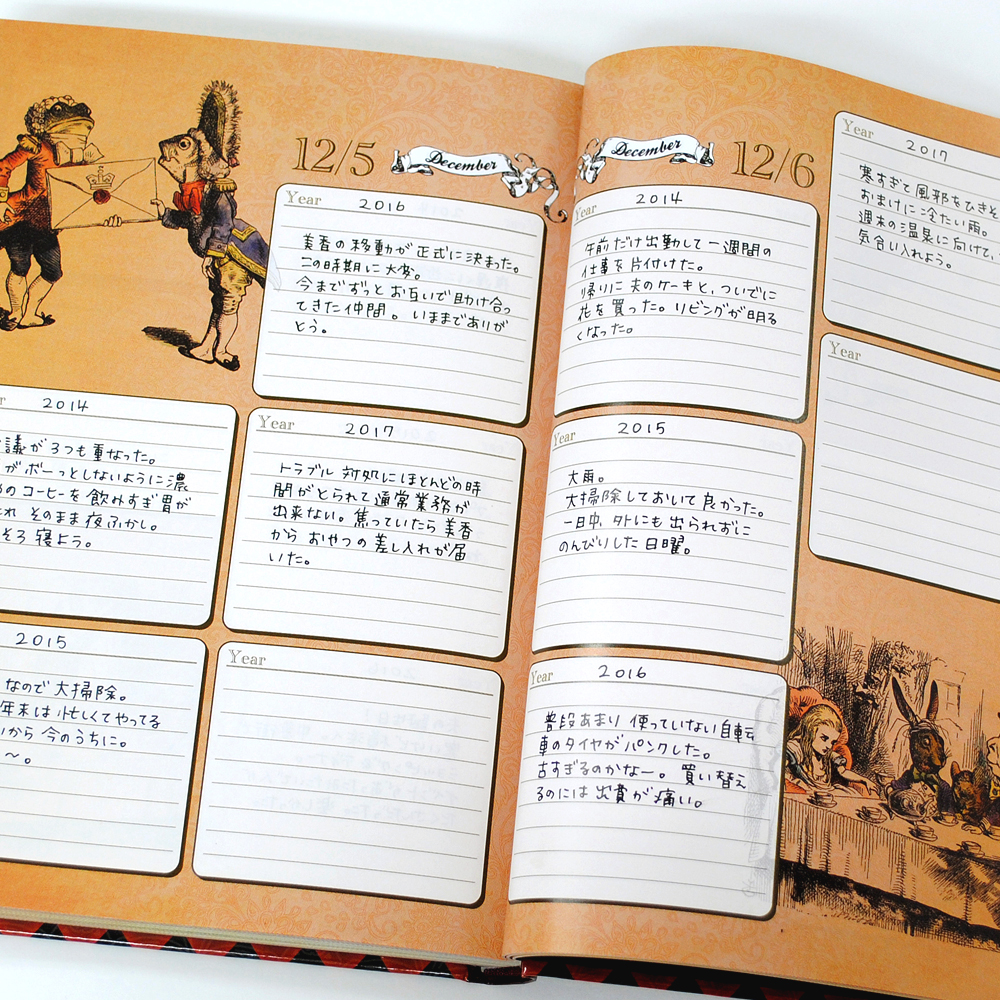 12/5
December
Year 2016
美香の移動が正式に決まった。
この時期に大変。
今までずっとお互いで助け合っ
てきた仲間。いままでありが
とう。
2014
議が3つも重なった。
がボーっとしないように濃
めのコーヒーを飲みすぎ胃が
れ そのまま夜ふかし。
そろ寝よう。
Year 2017
トラブル対処にほとんどの時
間がとられて通常業務が
出来ない。焦っていたら美香
からおやつの差し入れが届
いた。
2015
なので大掃除。
年末は忙しくてやってる
から今のうちに。
〜。
Year
December
12/6
Year 2014
午前だけ出勤して一週間の
仕事を片付けた。
帰りに夫のケーキと、ついでに
花を買った。リビングが明る
くなった。
Year 2015
大雨。
大掃除しておいて良かった。
一日中、外にも出られずに
のんびりした日曜。
Year 2016
普段あまり使っていない自転
車のタイヤがパンクした。
古すぎるのかなー。買い替え
るのには出費が痛い。
Year 2017
寒すぎて風邪をひきそ
おまけに冷たい雨。
週末の温泉に向けて、
気合い入れよう。
Year